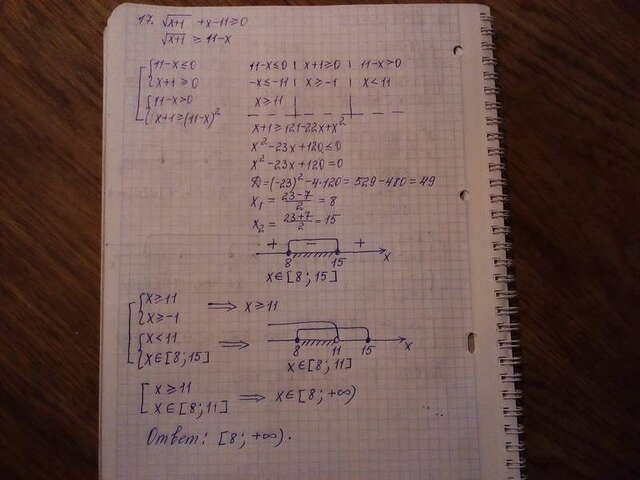 17. √(x+1) + x-11≥0
√(x+1) ≥ 11-x
[ { 11-x≤0 11-x≤0 | x+1≥0 | 11-x>0
{ x+1≥0 -x≤-11 | x≥-1 | x<11
{ 11-x>0 x≥11 | |
{ x+1≥(11-x)²
x+1≥121-22x+x²
x²-23x+120≤0
x²-23x+120=0
D=(-23)²-4·120=529-480=49
x₁ = (23-7)/2 = 8
x₂ = (23+7)/2 = 15
+ - +
8 15 x
x∈[8;15]
[ { x≥11 ⟹ x≥11
{ x≥-1
{ x<11 ⟹
{ x∈[8;15]
8 11 15 x
x∈[8;11]
[ x≥11 ⟹ x∈[8;+∞)
x∈[8;11]
Ответ: [8;+∞).